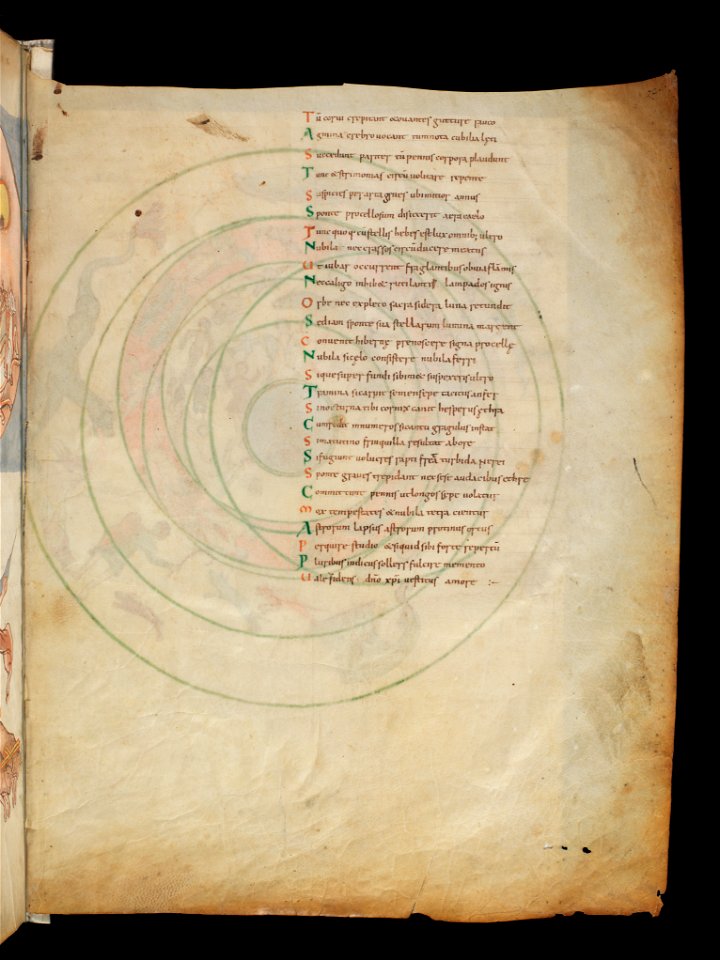 Tū corui crepitant & ouantes gutture rauco
Agmina crebro uocant tum nota cubilia leti
Succedunt pariter tū pennis corpora plaudunt
Tunc & strimonias circū uolitare repente
Suspicies per arta grues ubi mitior annus
Sponte procellosum discexerit aera caelo
Tunc quoq; cū stellis hebes est lux omnib; ultro
Nubila nec crassos circūducere meatus
Ut iubar occurrent fraglantibus obuia flāmis
Nec caligo inhib& rutilantis lampados ignis
Orbe nec expleto sacra sidera luna retundit
Sed iam sponte sua stellarum lumina marcent
Conuenit hibernę prenoscere signa procellę
Nubila si celo consistere nubila ferri
Sique super fundi sibimet suspexeris ultro
Gramina si carpit semensepe tacitus anser
Si nocturna tibi cornix canit hesperus ęthra
innumeros graculus instat
Si matutino frinquilla resultat ab ore
Si fugiunt uolucres rapti fr&ā turbida Nerei
Sponte graues trepidant nec se audacibus ethre
Committunt pennis ut longos sepe uolatus
Mox tempestates & nubila tetra cientur
Astrorum lapsus astrorum protinus ortus
Perquire studio & si quid sibi forte repertū
Pluribus indicus sollers fulcire memento
Uale fidens dn̄o xp̄i uestitus amore :~